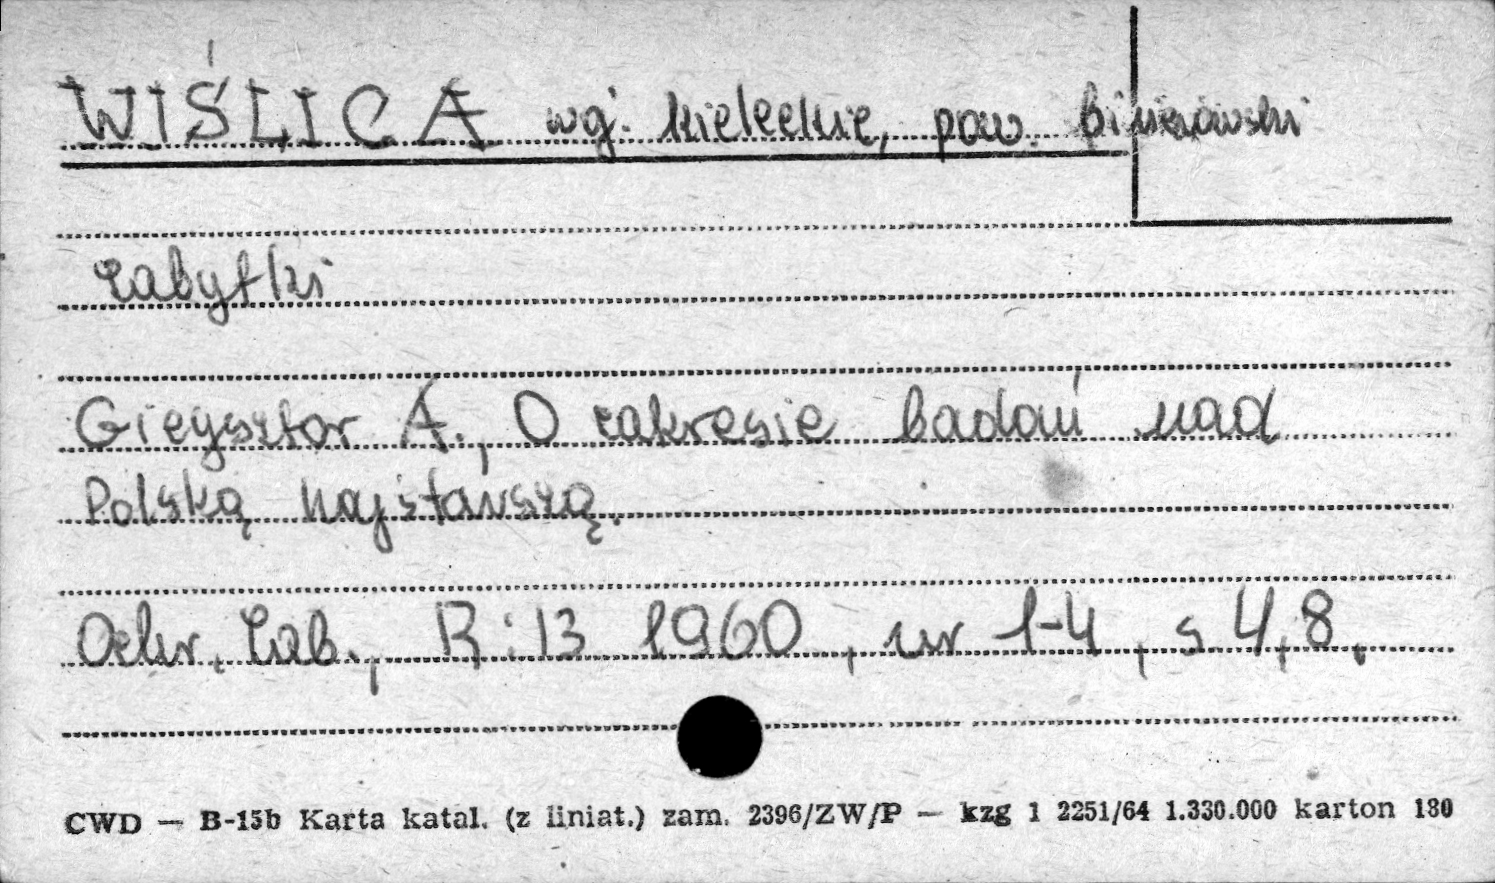 WIŚLICA woj. kieleckie, pow. Binżowski
zabytki
Gieysztor A., O zakresie badań nad
Polską najstarszą.
Ochr. Zab., R: 13 1960, nr 1-4, s 4,8,
CWD — B-15b Karta katal. (z liniat.) zam. 2396/ZW/P — kzg 1 2251/64 1.330.000 karton 180